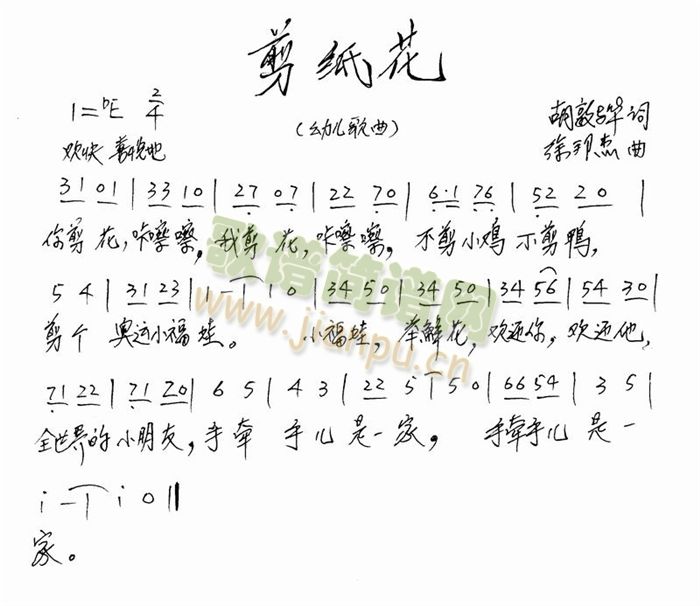 剪纸花
1=♭E 2/4
(幼儿歌曲)
胡敦骅 词
欢快 喜悦地
徐邦杰 曲
31 01 | 33 10 | 27 07 | 22 70 | 6·1 76 | 52 20 |
你剪 花,咔嚓嚓,我剪 花,咔嚓嚓, 不剪小鸡 不剪鸭,
5 4 | 31 23 | 1 - | 1 0 | 34 50 | 34 50 | 34 56 | 54 30 |
剪个 奥运小福娃。 小福娃, 举鲜花,欢迎你,欢迎他,
71 22 | 71 20 | 6 5 | 4 3 | 22 5 | 5 0 | 66 54 | 3 5 |
全世界的小朋友,手牵 手儿 是一家, 手牵手儿 是一
i - | i 0 ‖
家。
歌谱简谱网
www.jianpu.cn